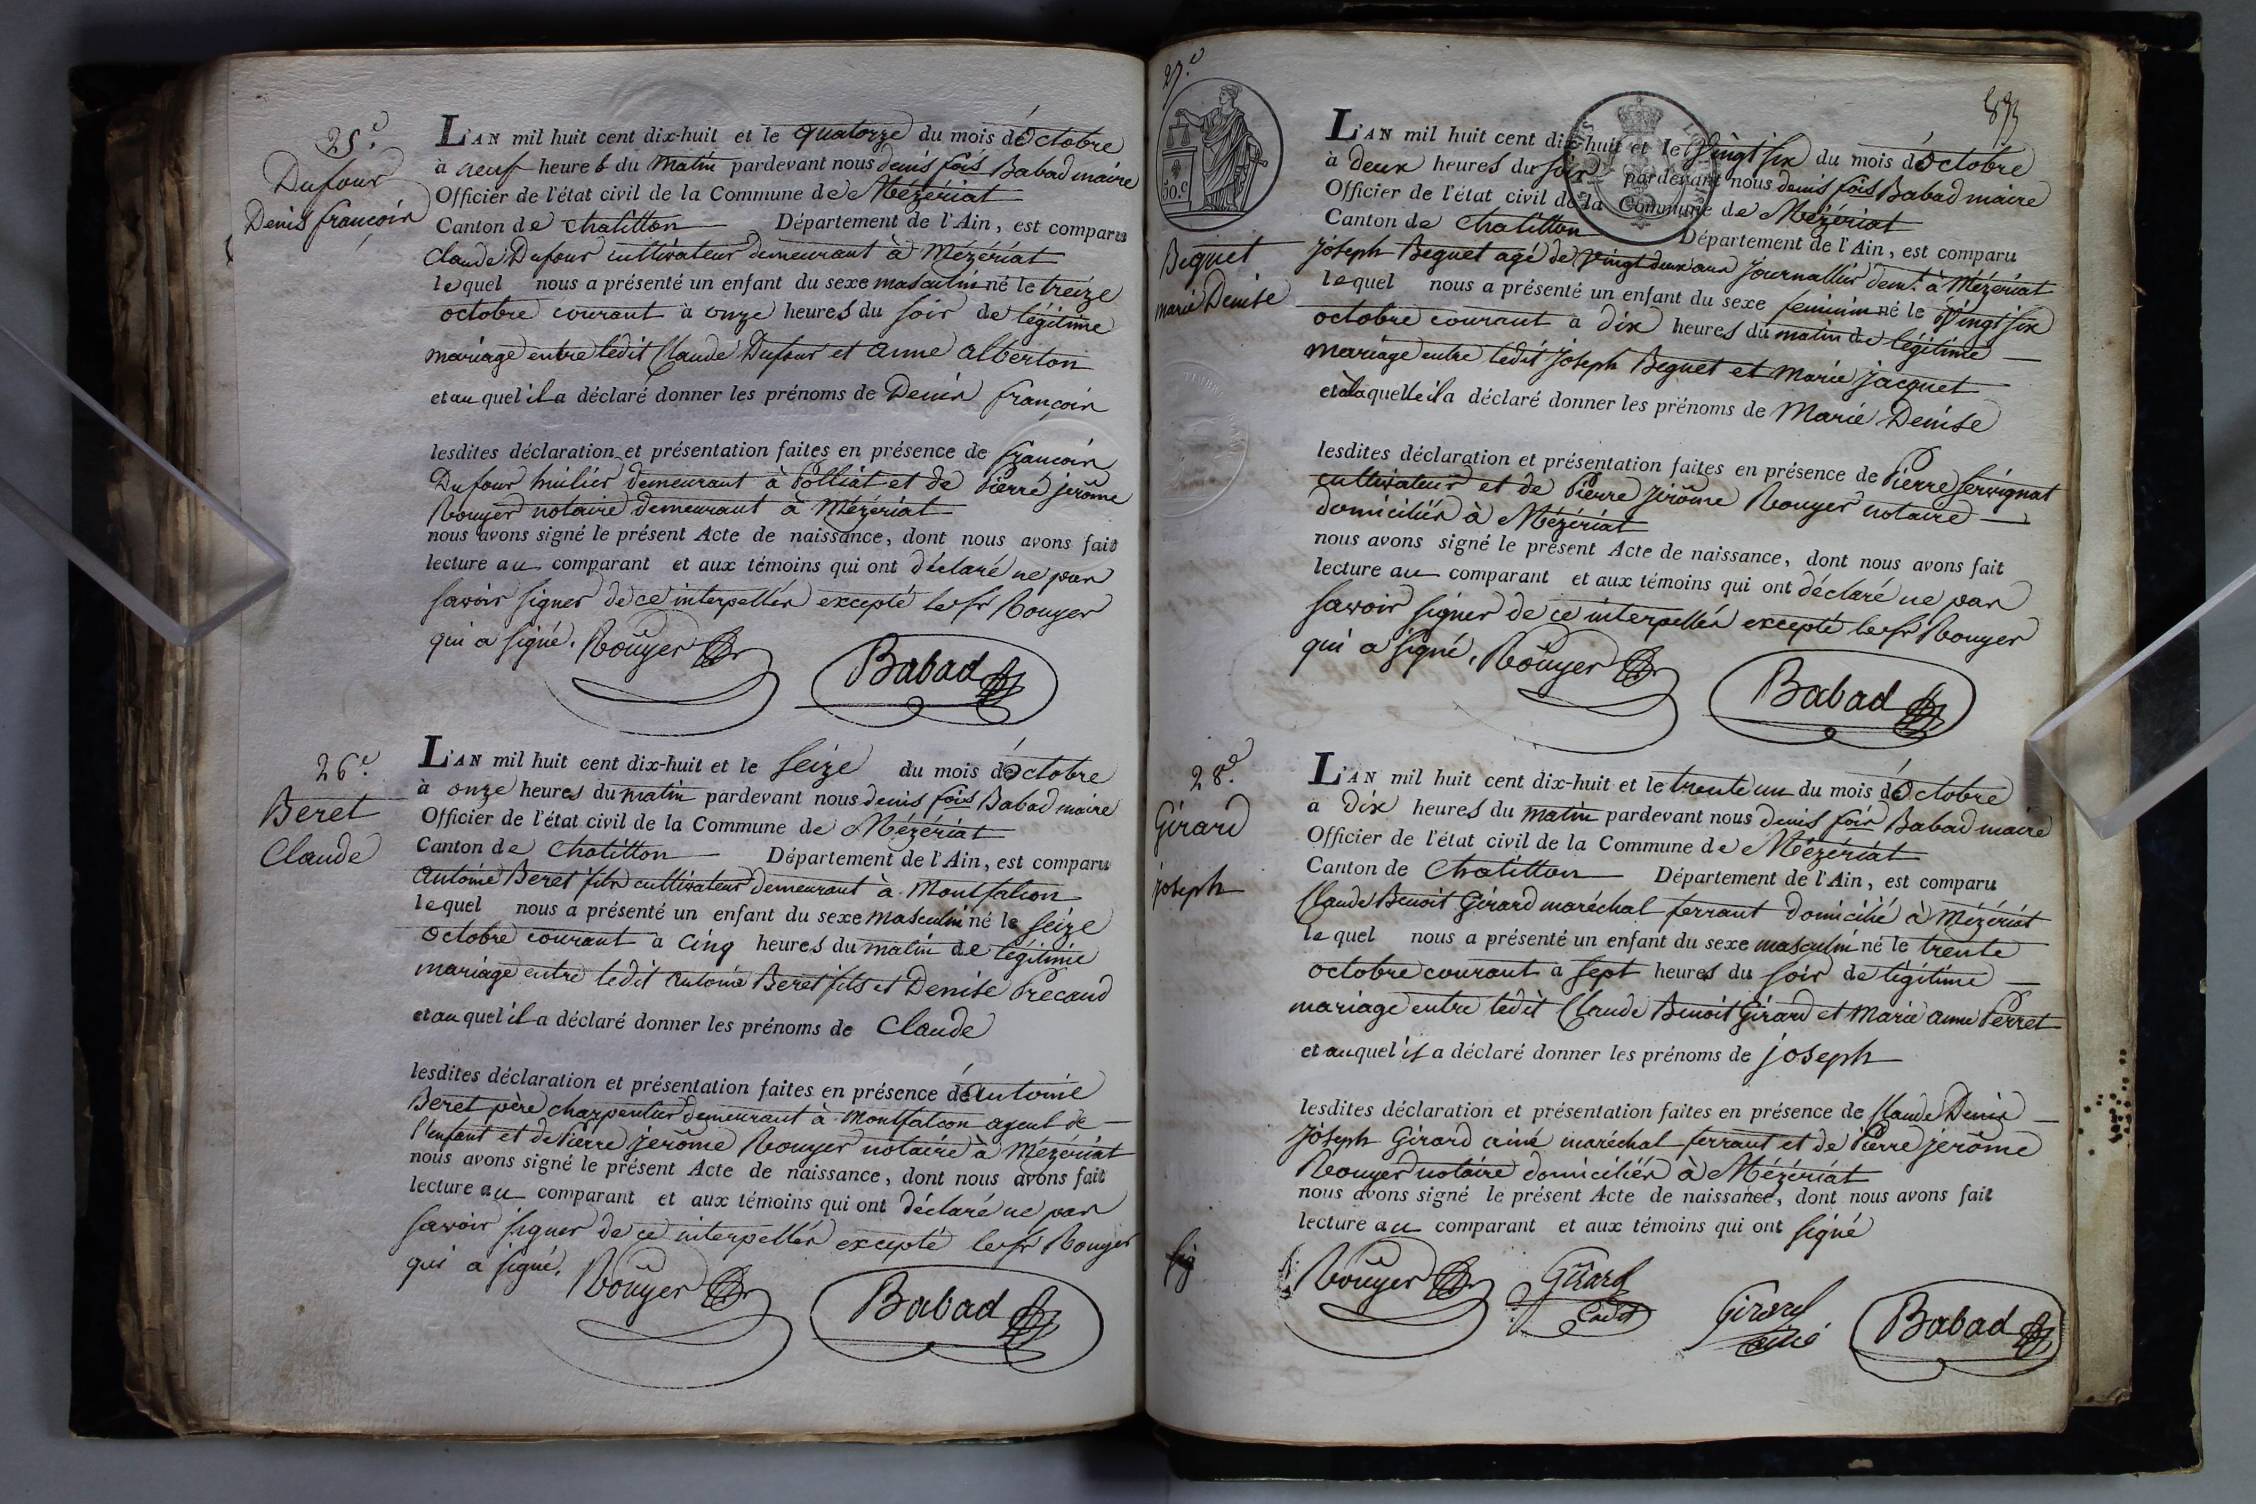 25.e
Dufour
Denis françois
L'AN mil huit cent dix-huit et le quatorze du mois d'Octobre
à neuf heures du matin pardevant nous denis fois Babad maire
Officier de l'état civil de la Commune de Mézériat
Canton de chatillon Département de l'Ain, est comparu
Claude Dufour cultivateur demeurant à Mézériat
lequel nous a présenté un enfant du sexe masculin né le treize
octobre courant à onze heures du soir de légitime
mariage entre ledit Claude Dufour et anne alberton
et au quel il a déclaré donner les prénoms de Denis françois
lesdites déclaration et présentation faites en présence de françois
Dufour huilier demeurant à Polliat et de Pierre jerôme
Rouyer notaire demeurant à Mézériat
nous avons signé le présent Acte de naissance, dont nous avons fait
lecture au comparant et aux témoins qui ont déclaré ne pas
savoir signer de ce interpellés excepté le sr Rouyer
qui a signé. Roüyer Babad
26.e
Beret
Claude
L'AN mil huit cent dix-huit et le seize du mois d'Octobre
à onze heures du matin pardevant nous denis fois Babad maire
Officier de l'état civil de la Commune de Mézériat
Canton de chatillon Département de l'Ain, est comparu
antoine Beret fils cultivateur demeurant à Montfalcon
lequel nous a présenté un enfant du sexe masculin né le seize
octobre courant à cinq heures du matin de légitime
mariage entre ledit antoine Beret fils et Denise Précaud
et au quel il a déclaré donner les prénoms de Claude
lesdites déclaration et présentation faites en présence d'antoine
Beret père charpentier demeurant à Montfalcon ageul de
l'enfant et de Pierre jerôme Rouyer notaire à Mézériat
nous avons signé le présent Acte de naissance, dont nous avons fait
lecture au comparant et aux témoins qui ont déclaré ne pas
savoir signer de ce interpellés excepté le sr Rouyer
qui a signé. Roüyer Babad
27.e
50.c
Beguet
marie Denise
L'AN mil huit cent dix-huit et le vingt six du mois d'Octobre
à deux heures du soir pardevant nous denis fois Babad maire
Officier de l'état civil de la Commune de Mézériat
Canton de chatillon Département de l'Ain, est comparu
joseph Beguet agé de vingt deux ans journallier demt. à Mézériat
lequel nous a présenté un enfant du sexe feminin né le vingt six
octobre courant à dix heures du matin de légitime
mariage entre ledit joseph Beguet et Marie jacquet
et à laquelle il a déclaré donner les prénoms de Marie Denise
lesdites déclaration et présentation faites en présence de Pierre servignat
cultivateur et de Pierre jerôme Rouyer notaire
domiciliés à Mézériat
nous avons signé le présent Acte de naissance, dont nous avons fait
lecture au comparant et aux témoins qui ont déclaré ne pas
savoir signer de ce interpellés excepté le sr Rouyer
qui a signé. Roüyer Babad
28.e
Girard
joseph
L'AN mil huit cent dix-huit et le trente un du mois d'Octobre
à dix heures du matin pardevant nous denis fois Babad maire
Officier de l'état civil de la Commune de Mézériat
Canton de Chatillon Département de l'Ain, est comparu
Claude Benoit Girard maréchal ferrant domicilié à Mézériat
lequel nous a présenté un enfant du sexe masculin né le trente
octobre courant à sept heures du soir de légitime
mariage entre ledit Claude Benoit Girard et Marie anne Perret
et auquel il a déclaré donner les prénoms de joseph
lesdites déclaration et présentation faites en présence de Claude Denis
joseph Girard ainé maréchal ferrant et de Pierre jerôme
Rouyer notaire domiciliés à Mézériat
nous avons signé le présent Acte de naissance, dont nous avons fait
lecture au comparant et aux témoins qui ont signé
Roüyer Girard Cadet Girard ainé Babad